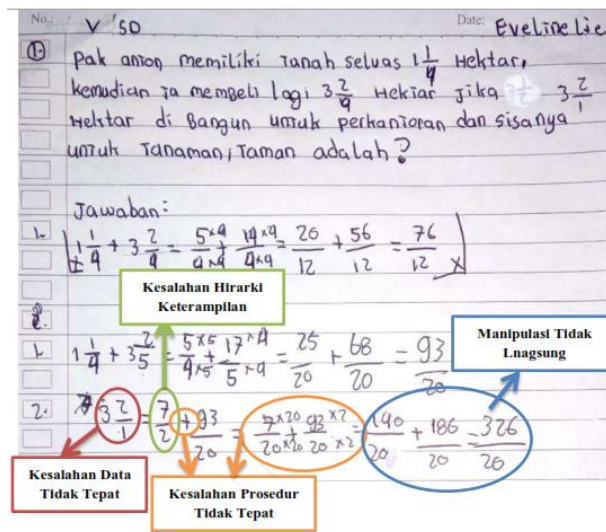 No.: V SD Date: Eveline Lie
1. Pak anton memiliki Tanah seluas 1 1/4 Hektar,
kemudian ia membeli lagi 3 2/4 Hektar Jika 3 2/1
Hektar di Bangun untuk perkantoran dan sisanya
untuk Tanaman, Taman adalah?
Jawaban:
1. 1 1/4 + 3 2/4 = 5×4/4×4 + 14×4/4×4 = 20/12 + 56/12 = 76/12 ×
Kesalahan Hirarki
Keterampilan
Manipulasi Tidak
Lnagsung
1. 1 1/4 + 3 2/5 = 5×5/4×5 + 17×4/5×4 = 25/20 + 68/20 = 93/20
2. 3 2/1 = 7/2 + 93/20 = 7×20/20×20 + 93×2/20×2 = 140/20 + 186/20 = 326/20
Kesalahan Data
Tidak Tepat
Kesalahan Prosedur
Tidak Tepat